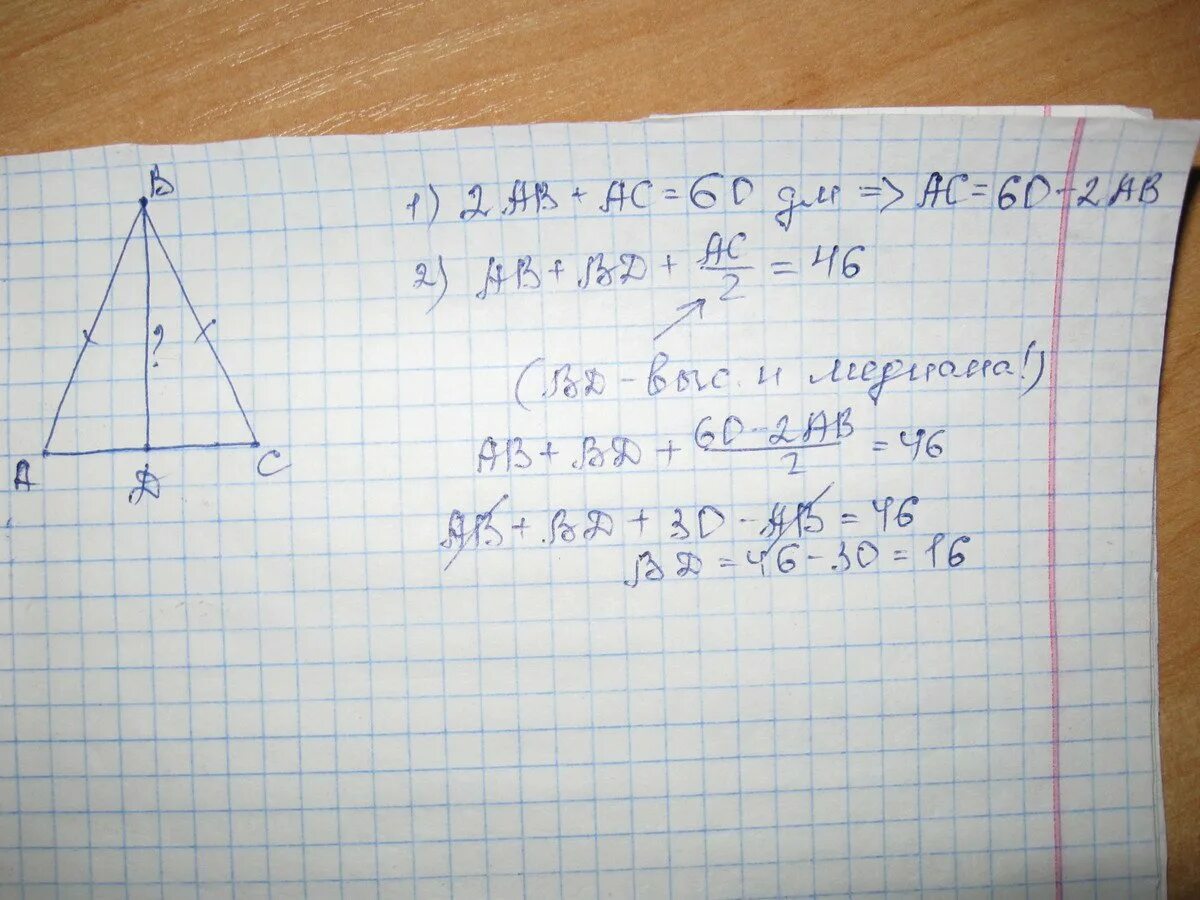 B
?
A
D
C
1) 2AB + AC = 60 дм => AC = 60 - 2AB
2) AB + BD + AC/2 = 46
(BD - выс. и медиана!)
AB + BD + 60 - 2AB/2 = 46
AB + BD + 30 - AB = 46
BD = 46 - 30 = 16